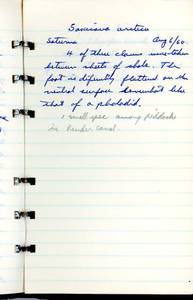 Saxicava arctica
Saturna Aug 6/60.
4 of these clams were taken
between sheets of shale. The
foot is definitely flattened on the
ventral surface somewhat like
that of a pholadid.
1 small spec among piddocks
in Pender Canal.